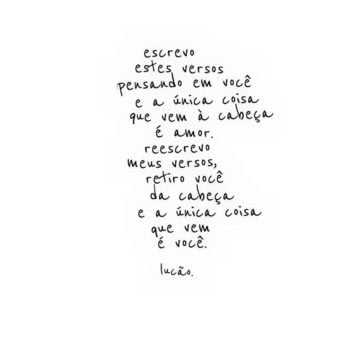 escrevo
estes versos
pensando em você
e a única coisa
que vem à cabeça
é amor.
reescrevo
meus versos,
retiro você
da cabeça
e a única coisa
que vem
é você.
lucão.